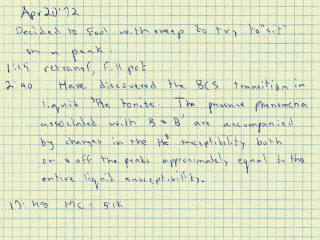 Apr 20 '72
Decided to fool with sweep to try to "sit"
on a peak.
1:15 retransf, fill pot
2:40 Have discovered the BCS transition in
liquid ³He tonite. The pressure phenomena
associated with B & B' are accompanied
by changes in the He³ susceptibility both
on & off the peaks approximately equal to the
entire liquid susceptibility.
MC = 51K